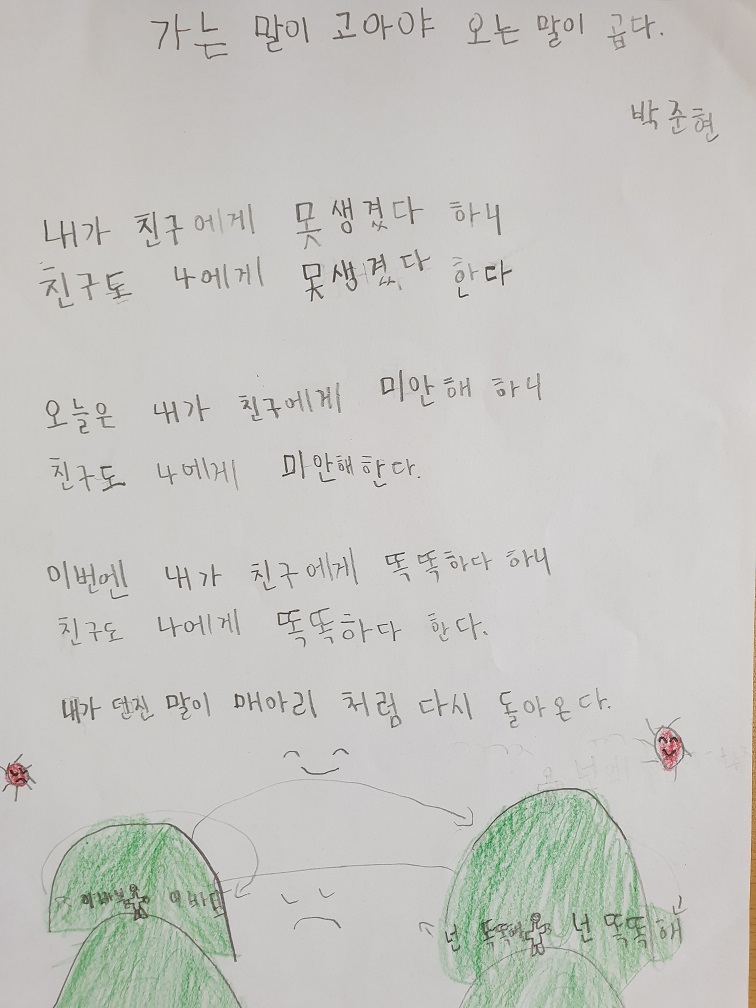 가는 말이 고아야 오는 말이 곱다.
박준현
내가 친구에게 못생겼다 하니
친구도 나에게 못생겼다 한다
오늘은 내가 친구에게 미안해 하니
친구도 나에게 미안해한다.
이번엔 내가 친구에게 똑똑하다 하니
친구도 나에게 똑똑하다 한다.
내가 던진 말이 매아리 처럼 다시 돌아온다.
이바보 이바보
넌 똑똑해 넌 똑똑해